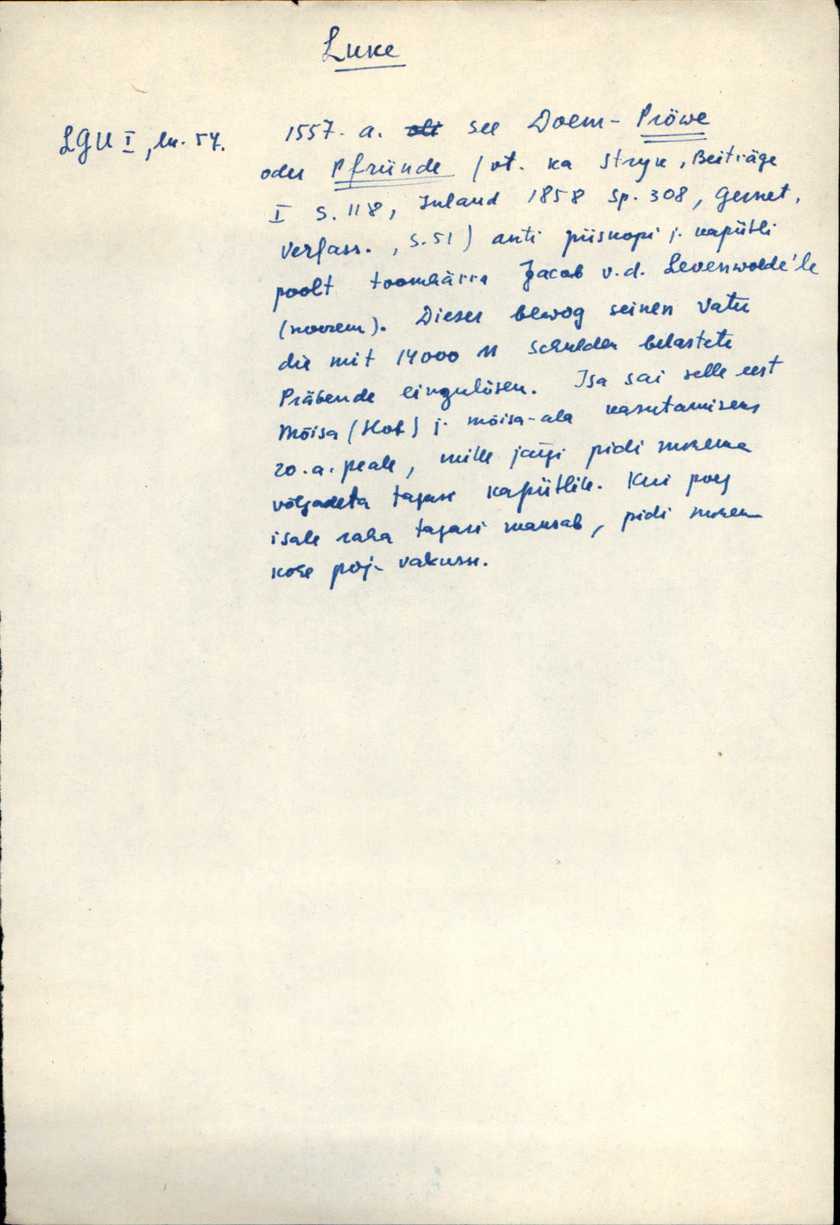 Luke
LGU I, lk. 54.
1557. a. olt see Doem-Pröwe
oder Pfründe (vt. ka Stryk, Beiträge
I S. 118, Inland 1858 Sp. 308, Gernet,
Verfass., S. 51) anti piiskopi j. kapiitli
poolt toomhärra Jacob v. d. Levenwolde'le
(noorem). Dieser bewog seinen Vater
die mit 14000 M Schulden belastete
Präbende einzulösen. Isa sai selle eest
Mõisa (Hof) j. mõisa-ala kasutamisens
20. a. peale, mille järgi pidi minema
võlgadeta tagasi kapiitlile. Kui poeg
isale raha tagasi maksab, pidi minema
kohe poja